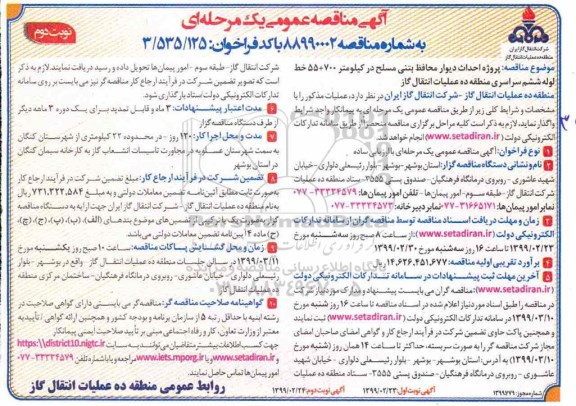 آگهی مناقصه عمومی یک مرحله‌ای
نوبت دوم
به شماره مناقصه ۸۸۹۹۰۰۰۲ با کد فراخوان: ۳/۵۳۵/۱۲۵
شرکت انتقال گاز ایران
منطقه ده عملیات انتقال گاز
موضوع مناقصه: پروژه احداث دیوار محافظ بتنی مسلح در کیلومتر ۷۰۰+۵۵ خط
لوله ششم سراسری منطقه ده عملیات انتقال گاز
منطقه ده عملیات انتقال گاز - شرکت انتقال گاز ایران در نظر دارد، عملیات مذکور را با
مشخصات و شرایط کلی زیر از طریق مناقصه عمومی یک مرحله ای به پیمانکار واجد شرایط
واگذار نماید، لازم به ذکر است کلیه مراحل برگزاری مناقصه از طریق سامانه تدارکات
الکترونیکی دولت (www.setadiran.ir) انجام خواهد شد
۱ نوع فراخوان: آگهی مناقصه عمومی یک مرحله‌ای با ارزیابی ساده
۲ نام و نشانی دستگاه مناقصه گزار: استان بوشهر- بوشهر- بلوار رئیسعلی دلواری- خیابان
شهید عاشوری - روبروی درمانگاه فرهنگیان- صندوق پستی ۳۵۵۵- ستاد عملیات
شرکت انتقال گاز- طبقه سوم- امور پیمان‌ها - تلفن امور پیمان‌ها: ۳۳۳۳۴۵۷۹-۰۷۷
نمابر امور پیمان‌ها: ۳۱۶۶۵۱۷۱-۰۷۷ نمابر دبیرخانه: ۳۳۳۳۴۵۷۳-۰۷۷
۳ زمان و مهلت دریافت اسناد مناقصه توسط مناقصه گران از سامانه تدارکات
الکترونیکی دولت (www.setadiran.ir): از ساعت ۸ صبح روز سه‌شنبه مورخ
۱۳۹۹/۰۲/۲۳ تا ساعت ۱۶ روز سه‌شنبه مورخ ۱۳۹۹/۰۲/۳۰
۴ برآورد تقریبی اولیه مناقصه: ۱۴,۶۲۶,۴۵۱,۶۷۷ ریال
۵ آخرین مهلت ثبت پیشنهادات در سامانه تدارکات الکترونیکی دولت
(www.setadiran.ir): مناقصه گران می‌بایست پیشنهادات و مدارک موردنیاز
در مناقصه را طبق اسناد موردنیاز اعلام شده در اسناد مناقصه تا ساعت ۱۶ روز شنبه مورخ
۱۳۹۹/۰۳/۱۰ در سامانه تدارکات الکترونیکی دولت (www.setadiran.ir) ثبت نمایند
و همچنین پاکت حاوی تضمین شرکت در فرآیند ارجاع کار و گواهی امضای صاحبان امضای
مجاز شرکت مناقصه گر را به صورت سربسته، حداکثر تا ساعت ۱۴ همان روز (شنبه مورخ
۱۳۹۹/۰۳/۱۰) به آدرس: استان بوشهر- بوشهر - بلوار رئیسعلی دلواری - خیابان شهید
عاشوری - روبروی درمانگاه فرهنگیان- صندوق پستی ۳۵۵۵- ستاد عملیات
شرکت انتقال گاز- طبقه سوم - امور پیمان‌ها تحویل داده و رسید دریافت نمایند. لازم به ذکر
است که تصویر تضمین شرکت در فرآیند ارجاع کار مناقصه گر نیز می بایست بر روی سامانه
تدارکات الکترونیکی دولت ستاد بارگذاری شود.
۶ مدت اعتبار پیشنهادات: ۳ ماه و قابل تمدید برای یک دوره ۳ ماهه دیگر
از طرف دستگاه مناقصه گزار
۷ مدت و محل اجرا کار: ۱۲۰ روز - در محدوده ۲۲ کیلومتری از شهرستان کنگان
به سمت شهرستان عسلویه در مجاورت تاسیسات انشعاب گاز به کارخانه سیمان کنگان
در استان بوشهر
۸ تضمین شرکت در فرآیند ارجاع کار: مبلغ تضمین شرکت در فرآیند ارجاع کار
به‌صورت ثابت مطابق آئین‌نامه تضمین معاملات دولتی و به مبلغ ۷۳۱,۳۲۲,۵۸۴ ریال
به نام منطقه ده عملیات انتقال گاز - شرکت انتقال گاز ایران جهت ارایه به دستگاه مناقصه
گزار، به صورت یک یا ترکیبی از تضمین‌های موضوع بندهای (الف)، (ب)، (پ)، (ج)، (چ)،
(ح) ماده ۴ آیین نامه تضمین معاملات دولتی می باشد.
۹ زمان و محل گشایش پاکات مناقصه: ساعت ۱۰ صبح روز یکشنبه مورخ
۱۳۹۹/۰۳/۱۱ در سالن جلسات منطقه ده عملیات انتقال گاز واقع در بوشهر - بلوار
رئیسعلی دلواری- خیابان عاشوری - روبروی درمانگاه فرهنگیان- ساختمان مرکزی منطقه
ده عملیات انتقال گاز
۱۰ گواهینامه صلاحیت مناقصه گر: مناقصه گر می بایستی دارای گواهی صلاحیت در
رشته ابنیه با حداقل رتبه ۵ از سازمان برنامه و بودجه کشور و همچنین ارائه گواهی / تأییدیه
معتبر از وزارت تعاون، کار و رفاه اجتماعی مبنی بر تأیید صلاحیت ایمنی پیمانکار
جهت کسب اطلاعات بیشتر متقاضیان می‌توانند به سایت https:\\district10.nigtc.ir
و www.setadiran.ir و یا www.iets.mporg.ir مراجعه و یا با شماره تلفن ۳۳۳۳۴۵۷۹-۰۷۷
امور پیمان‌ها تماس حاصل نمایند.
روابط عمومی منطقه ده عملیات انتقال گاز
آگهی نوبت اول: ۱۳۹۹/۰۲/۲۳
آگهی نوبت دوم: ۱۳۹۹/۰۲/۲۴
شماره مجوز: ۱۳۹۹/۷۷۹